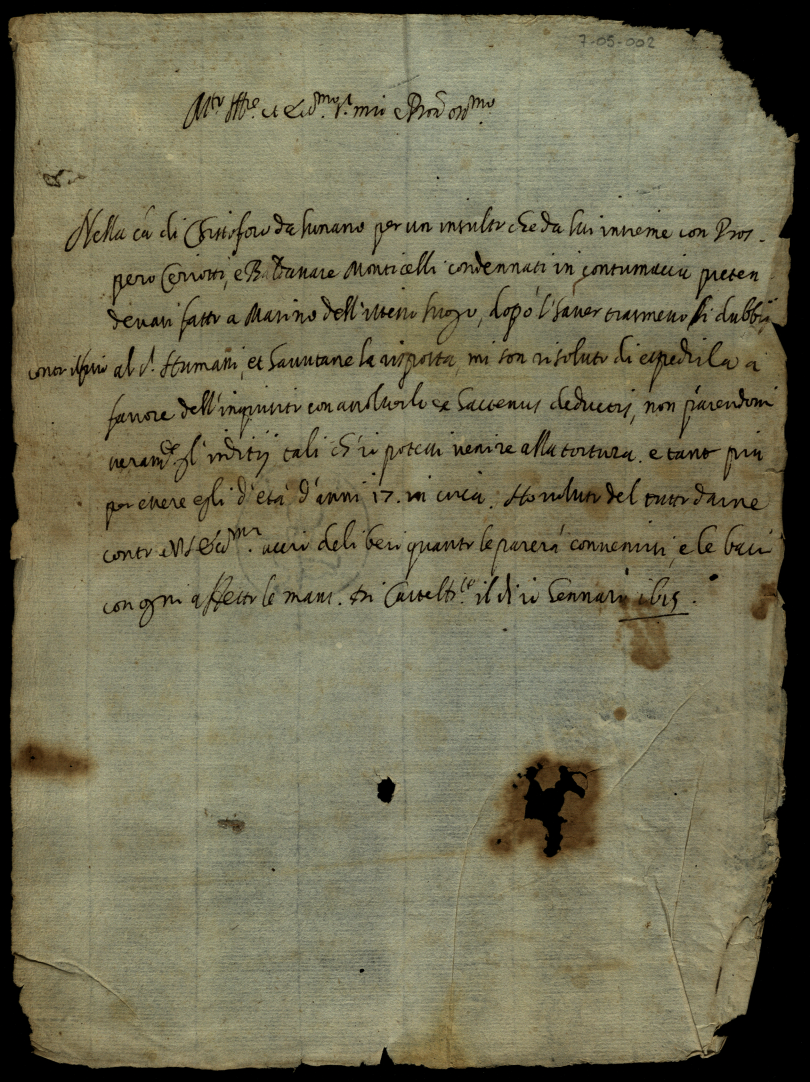 7-05-002
Mto Ille et Ecc.mo S.r mio e Pron oss.mo
Nella ca di Christoforo da lunano per un insulto che da lui insieme con Pros-
pero Ceriotti, e Baldassare Monticelli condennati in contumacia preten
devasi fatto a Marino dell'istesso luogo, dopò l'haver trasmesso li dubbij
al S.r Humani, et havutane la risposta, mi son risoluto di espedirla a
favore dell'inquisito con assolverlo ex hactenus deductis, non parendomi
veram.te gl'inditij tali ch'si potesse venire alla tortura. e tanto più
per essere egli d'età d'anni 17. in circa. Ho voluto del tutto darne
conto VS Ecc.ma acciò deliberi quanto le parerà convenirsi, e le baci
con ogni affetto le mani. Di il di io Gennaro 1615.